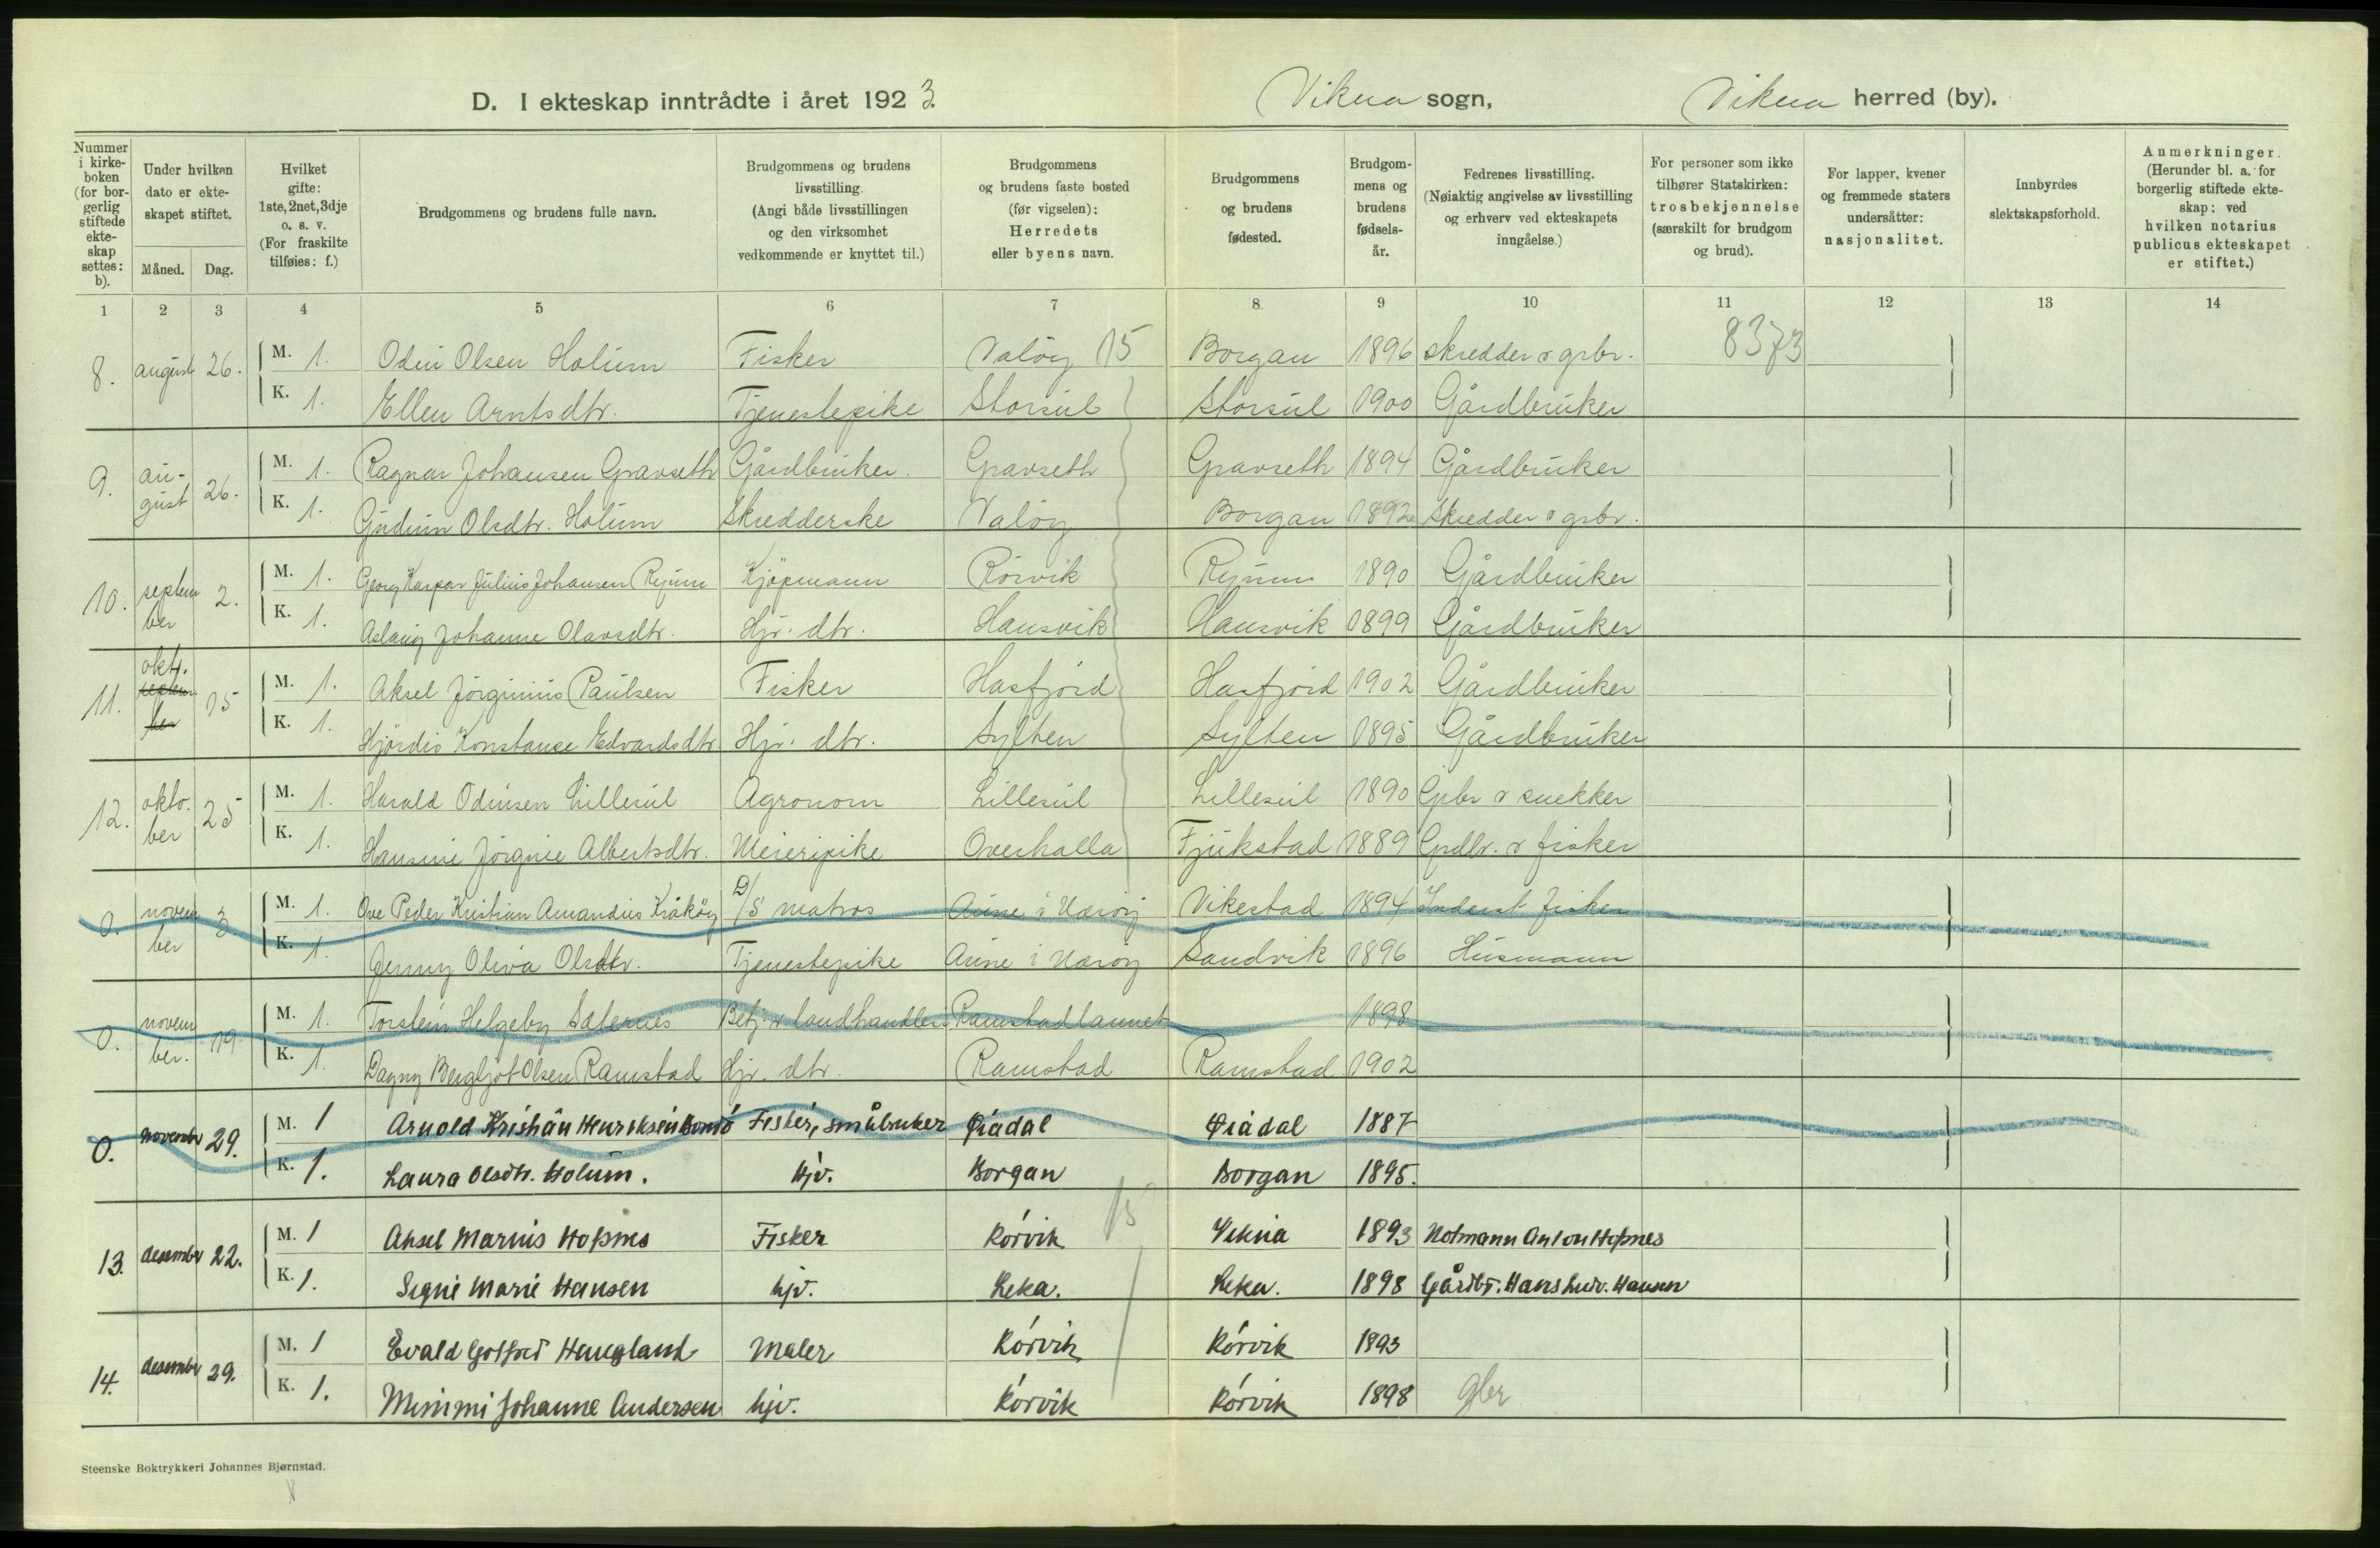 D. I ekteskap inntrådte i året 1923. Vikna sogn, Vikna herred (by).
Nummer i kirkeboken (for borgerlig stiftede ekteskap settes: b).
Under hvilken dato er ekteskapet stiftet.
Måned. Dag.
Hvilket gifte: 1ste, 2net, 3dje o. s. v. (For fraskilte tilføies: f.)
Brudgommens og brudens fulle navn.
Brudgommens og brudens livsstilling. (Angi både livsstillingen og den virksomhet vedkommende er knyttet til.)
Brudgommens og brudens faste bosted (før vigselen): Herredets eller byens navn.
Brudgommens og brudens fødested.
Brudgommens og brudens fødselsår.
Fedrenes livsstilling. (Nøiaktig angivelse av livsstilling og erhverv ved ekteskapets inngåelse.)
For personer som ikke tilhører Statskirken: trosbekjennelse (særskilt for brudgom og brud).
For lapper, kvener og fremmede staters undersåtter: nasjonalitet.
Innbyrdes slektskapsforhold.
Anmerkninger. (Herunder bl. a. for borgerlig stiftede ekteskap: ved hvilken notarius publicus ekteskapet er stiftet.)
1 2 3 4 5 6 7 8 9 10 11 12 13 14
8. august 26. M. 1. Odin Olsen Holum Fisker Valöy 15 Borgan 1896 skredder & grbr. 8373
K. 1. Ellen Arntsdtr. Tjenestepike Storsul Storsul 1900 Gårdbruker
9. august 26. M. 1. Ragnar Johansen Gravseth Gårdbruker. Gravseth Gravseth 1894 Gårdbruker
K. 1. Gudrun Olsdtr. Holum Skredderske Valöy Borgan 1892 Skredder & grbr.
10. september 2. M. 1. Georg Kaspar Julius Johansen Ryum Kjöpmann Rörvik Ryum 1890 Gårdbruker
K. 1. Aslaug Johanne Olavsdtr. Hjv. dtr. Hansvik Hansvik 1899 Gårdbruker
11. oktr. september 15 M. 1. Aksel Jörginius Paulsen Fisker Hasfjörd Hasfjörd 1902 Gårdbruker
K. 1. Hjördis Konstanse Edvardsdtr Hjv. dtr. Sylten Sylten 1895 Gårdbruker
12. oktober 25 M. 1. Harald Odinsen Lillesul Agronom Lillesul Lillesul 1890 Grbr & snekker
K. 1. Hansine Jörgine Albertsdtr. Meieripike Overhalla Fjukstad 1889 Grdbr. & fisker
0. november 3. M. 1. Ove Peder Kristian Amandus Kråköy D/S matros Aune i Næröy Vikestad 1894 Inderst fisker
K. 1. Jenny Oliva Olsdtr. Tjenestepike Aune i Næröy Sandvik 1896 Husmann
0. november. 19 M. 1. Torstein Helgeby Sæternes Betj. v landhandleri Ramstadlannet 1898
K. 1. Dagny Bergljot Olsen Ramstad Hjv. dtr. Ramstad Ramstad 1902
0. november 29. M. 1 Arnold Kristian Henriksen Fisker, småbruker 1887
K. 1. Laura Olsdtr. Holum. Hjv. Borgan Borgan 1895.
13. desember 22. M. 1 Aksel Marius Hopsnes Fisker Rörvik 15 Vikna 1893 Notmann Anton Hopnes
K. 1. Signe Marie Hansen hjv. Leka. Leka. 1898 Gårdbr. Hans Ludv. Hansen
14. desember 29. M. 1 Evald Gotfred Haugland Maler Rörvik Rörvik 1893
K. 1. Mimmi Johanne Andersen hjv. Rörvik Rörvik 1898 gbr
Steenske Boktrykkeri Johannes Bjørnstad.